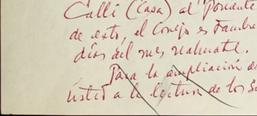 Calli (Casa) al Poniente
de esto, el Conejo es tambié
días del mes nahuatl.
Para la ampliación de
usted a la lectura de los